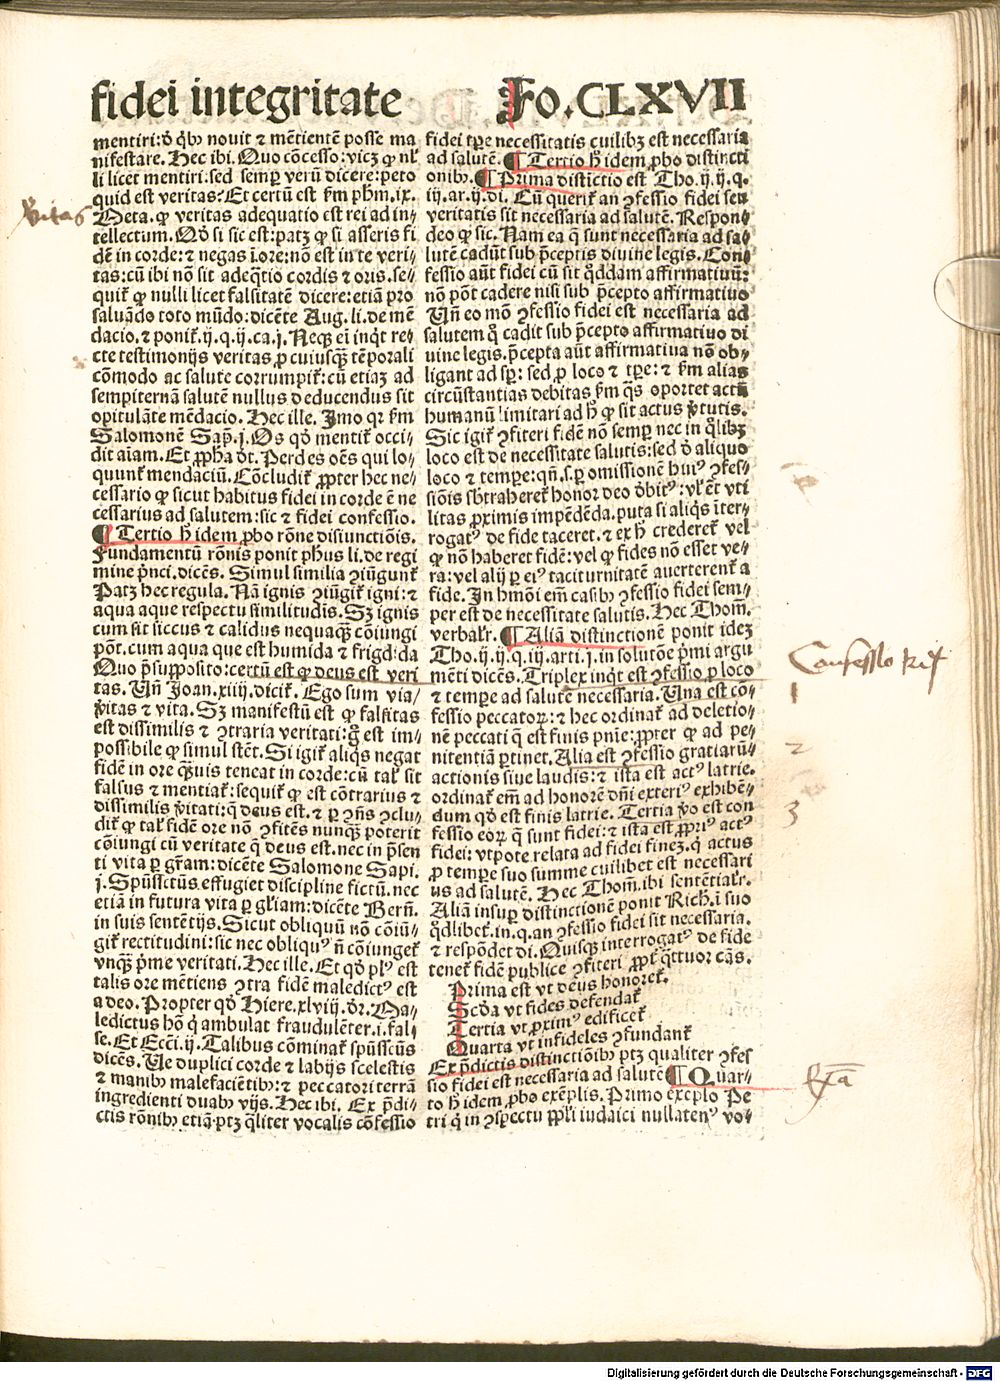 fidei integritate
Fo. CLXVII
mentiri: nouit ⁊ mētientē posse ma
nifestare. Hec ibi. Quo cōcesso: vicꝫ ꝙ nl̉
li licet mentiri. sed semꝑ verū dicere: peto
quid est veritas: Et certū est ẜm phm̄. ix.
Meta. ꝙ veritas adequatio est rei ad in⸗
tellectum. Qd̓ si sic est: patꝫ ꝙ si asseris fi
dē in corde: ⁊ negas ī ore: nō est in te veri⸗
tas: cū ibi nō sit adeq̄tio cordis ⁊ oris. se⸗
quit̉ ꝙ nulli licet falsitatē dicere: etiā pro
saluādo toto mūdo: dicēte Aug. li. de mē
dacio. ⁊ ponit̉. ij. q. ij. ca. j. Neqꝫ ei inq̇t re⸗
cte testimonijs veritas ꝓ cuiusqꝫ tēporali
cōmodo ac salute corrumpit̉: cū etiaꝫ ad
sempiternā salutē nullus deducendus sit
opitulāte mēdacio. Hec ille. Imo qꝛ ẜm
Salomonē Sap̄. j. Os qd̓ mentit̉ occi⸗
dit aīam. Et ꝓpha d̓t. Perdes oēs qui lo⸗
quunt̉ mendaciū. Cōcludit̉ ꝓpter hec ne⸗
cessario ꝙ sicut habitus fidei in corde ē ne
cessarius ad salutem: sic ⁊ fidei confessio.
¶ Tertio h̓ idem ꝓbo rōne disiunctiōis.
Fundamentū rōnis ponit phus li. de regi
mine pⁿci. dicēs. Simul similia ꝯiūgunt̉
Patꝫ hec regula. Nā ignis ꝯiūgit̉ igni: ⁊
aqua aque respectu similitudis. Sꝫ ignis
cum sit siccus ⁊ calidus nequaqꝫ cōiungi
pōt. cum aqua que est humida ⁊ frigida
Quo p̄supposito: certū est ꝙ deus est veri
tas. Vn̄ Joan. xiiij. dicit̉. Ego sum via⸗
v̓itas ⁊ vita. Sꝫ manifestū est ꝙ falsitas
est dissimilis ⁊ ꝯtraria veritati: g̊ est im⸗
possibile ꝙ simul stēt. Si igit̉ aliqs negat
fidē in ore qꝫuis teneat in corde: cū tal̉ sit
falsus ⁊ mentiat̉: sequit̉ ꝙ est cōtrarius ⁊
dissimilis v̓itati: q̄ deus est. ⁊ ꝑ ꝯn̄s ꝯclu⸗
dit̉ ꝙ tal̉ fidē ore nō ꝯfitēs nunqꝫ poterit
cōiungi cū veritate q̄ deus est. nec in p̄sen
ti vita ꝑ gr̄am: dicēte Salomone Sapi.
j. Spūssctūs effugiet discipline fictū. nec
etiā in futura vita ꝑ gl̓iam: dicēte Berń.
in suis sentētijs. Sicut obliquū nō cōiū⸗
git̉ rectitudini: sic nec obliquꝰ n̄ cōiunget̉
vnqꝫ p̄me veritati. Hec ille. Et qd̓ plꝰ est
talis ore mētiens ꝯtra fidē maledictꝰ est
a deo. Propter qd̓ Hiere. xlviij. d̓r. Ma⸗
ledictus hō q̇ ambulat fraudulēter. i. fal⸗
se. Et Ecci. ij. Talibus cōminat̉ spūsscūs
dicēs. Ve duplici corde ⁊ labijs scelestis
⁊ manibꝰ malefaciētibꝰ: ⁊ peccatori terrā
ingredienti duabꝰ vijs. Hec ibi. Ex p̄di⸗
ctis rōnibꝰ etiā ptꝫ q̄liter vocalis cōfessio
fidei tp̄e necessitatis cuilibꝫ est necessaria
ad salutē. ¶ Tertio h̓ idem ꝓbo distincti
onibꝰ. ¶ Prima distictio est Tho. ij. ij. q.
iij. ar. ij. di. Cū querit̉ an ꝯfessio fidei seu
veritatis sit necessaria ad salutē. Respon⸗
deo ꝙ sic. Nam ea q̄ sunt necessaria ad sa⸗
lutē cadūt sub p̄ceptis diuine legis. Con⸗
fessio aūt fidei cū sit q̊ddam affirmatiuū:
nō pōt cadere nisi sub p̄cepto affirmatiuo
Vn̄ eo mō ꝯfessio fidei est necessaria ad
salutem q̊ cadit sub p̄cepto affirmatiuo di
uine legis. p̄cepta aūt affirmatiua nō ob⸗
ligant ad sp̄: sed ꝓ loco ⁊ tp̄e: ⁊ ẜm alias
circūstantias debitas ẜm q̄s oportet actū
humanū limitari ad h̓ ꝙ sit actus v̓tutis.
Sic igit̉ ꝯfiteri fidē nō semꝑ nec in q̊libꝫ
loco est de necessitate salutis: sed d̓ aliquo
loco ⁊ tempe: qn̄. s. ꝑ omissionē huiꝰ ꝯfes⸗
siōis sb̓traheret̉ honor deo d̓bitꝰ: vl̓ ēt vti
litas ꝓximis impēdēda. puta si aliqs īter⸗
rogatꝰ de fide taceret. ⁊ ex h̓ crederet̉ vel
ꝙ nō haberet fidē: vel ꝙ fides nō esset ve⸗
ra: vel alij ꝑ eiꝰ taciturnitatē auerterent̉ a
fide. In hmōi em̄ casibꝰ ꝯfessio fidei sem⸗
per est de necessitate salutis. Hec Thom̄.
verbalr̉. ¶ Aliā distinctionē ponit ideꝫ
Tho. ij. ij. q. iij. arti. j. in solutōe p̄mi argu
mēti dicēs. Triplex inq̇t est ꝯfessio ꝑ loco
⁊ tempe ad salutē necessaria. Una est cō⸗
fessio peccatoꝝ: ⁊ hec ordinat̉ ad deletio⸗
nē peccati q̄ est finis pn̄ie: ꝓpter qd̓ ad pe⸗
nitentiā ꝑtinet. Alia est ꝯfessio gratiarū⸗
actionis siue laudis: ⁊ ista est actꝰ latrie.
ordinat̉ em̄ ad honorē dn̄i exteriꝰ exhibē⸗
dum qd̓ est finis latrie. Tertia v̓o est con
fessio eoꝝ q̄ sunt fidei: ⁊ ista est ꝓpriꝰ actꝰ
fidei: vtpote relata ad fidei fineꝫ. q̄ actus
ꝓ tempe suo summe cuilibet est necessari
us ad salutē. Hec Thom̄. ibi sentētialr̉.
Aliā insuꝑ distinctionē ponit Rich. ī suo
q̊dlibet̉. in. q. an ꝯfessio fidei sit necessaria.
⁊ respōdet di. Quisqꝫ interrogatꝰ de fide
tenet̉ fidē publice ꝯfiteri ꝓpt̉ q̄ttuor cās.
Prima est vt deus honoret̉.
Scd̓a vt fides defendat̉
Tertia vt ꝓximꝰ edificet̉
Quarta vt infideles ꝯfundant̉
Ex p̄dictis distinctiōibꝰ ptꝫ qualiter ꝯfes
sio fidei est necessaria ad salutē ¶ Quar⸗
to h̓ idem ꝓbo exēplis. Primo exēplo Pe
tri q̇ in ꝯspectu ppl̓i iudaici nullatenꝰ vo⸗
v̓itas
Confessio
1
2
3